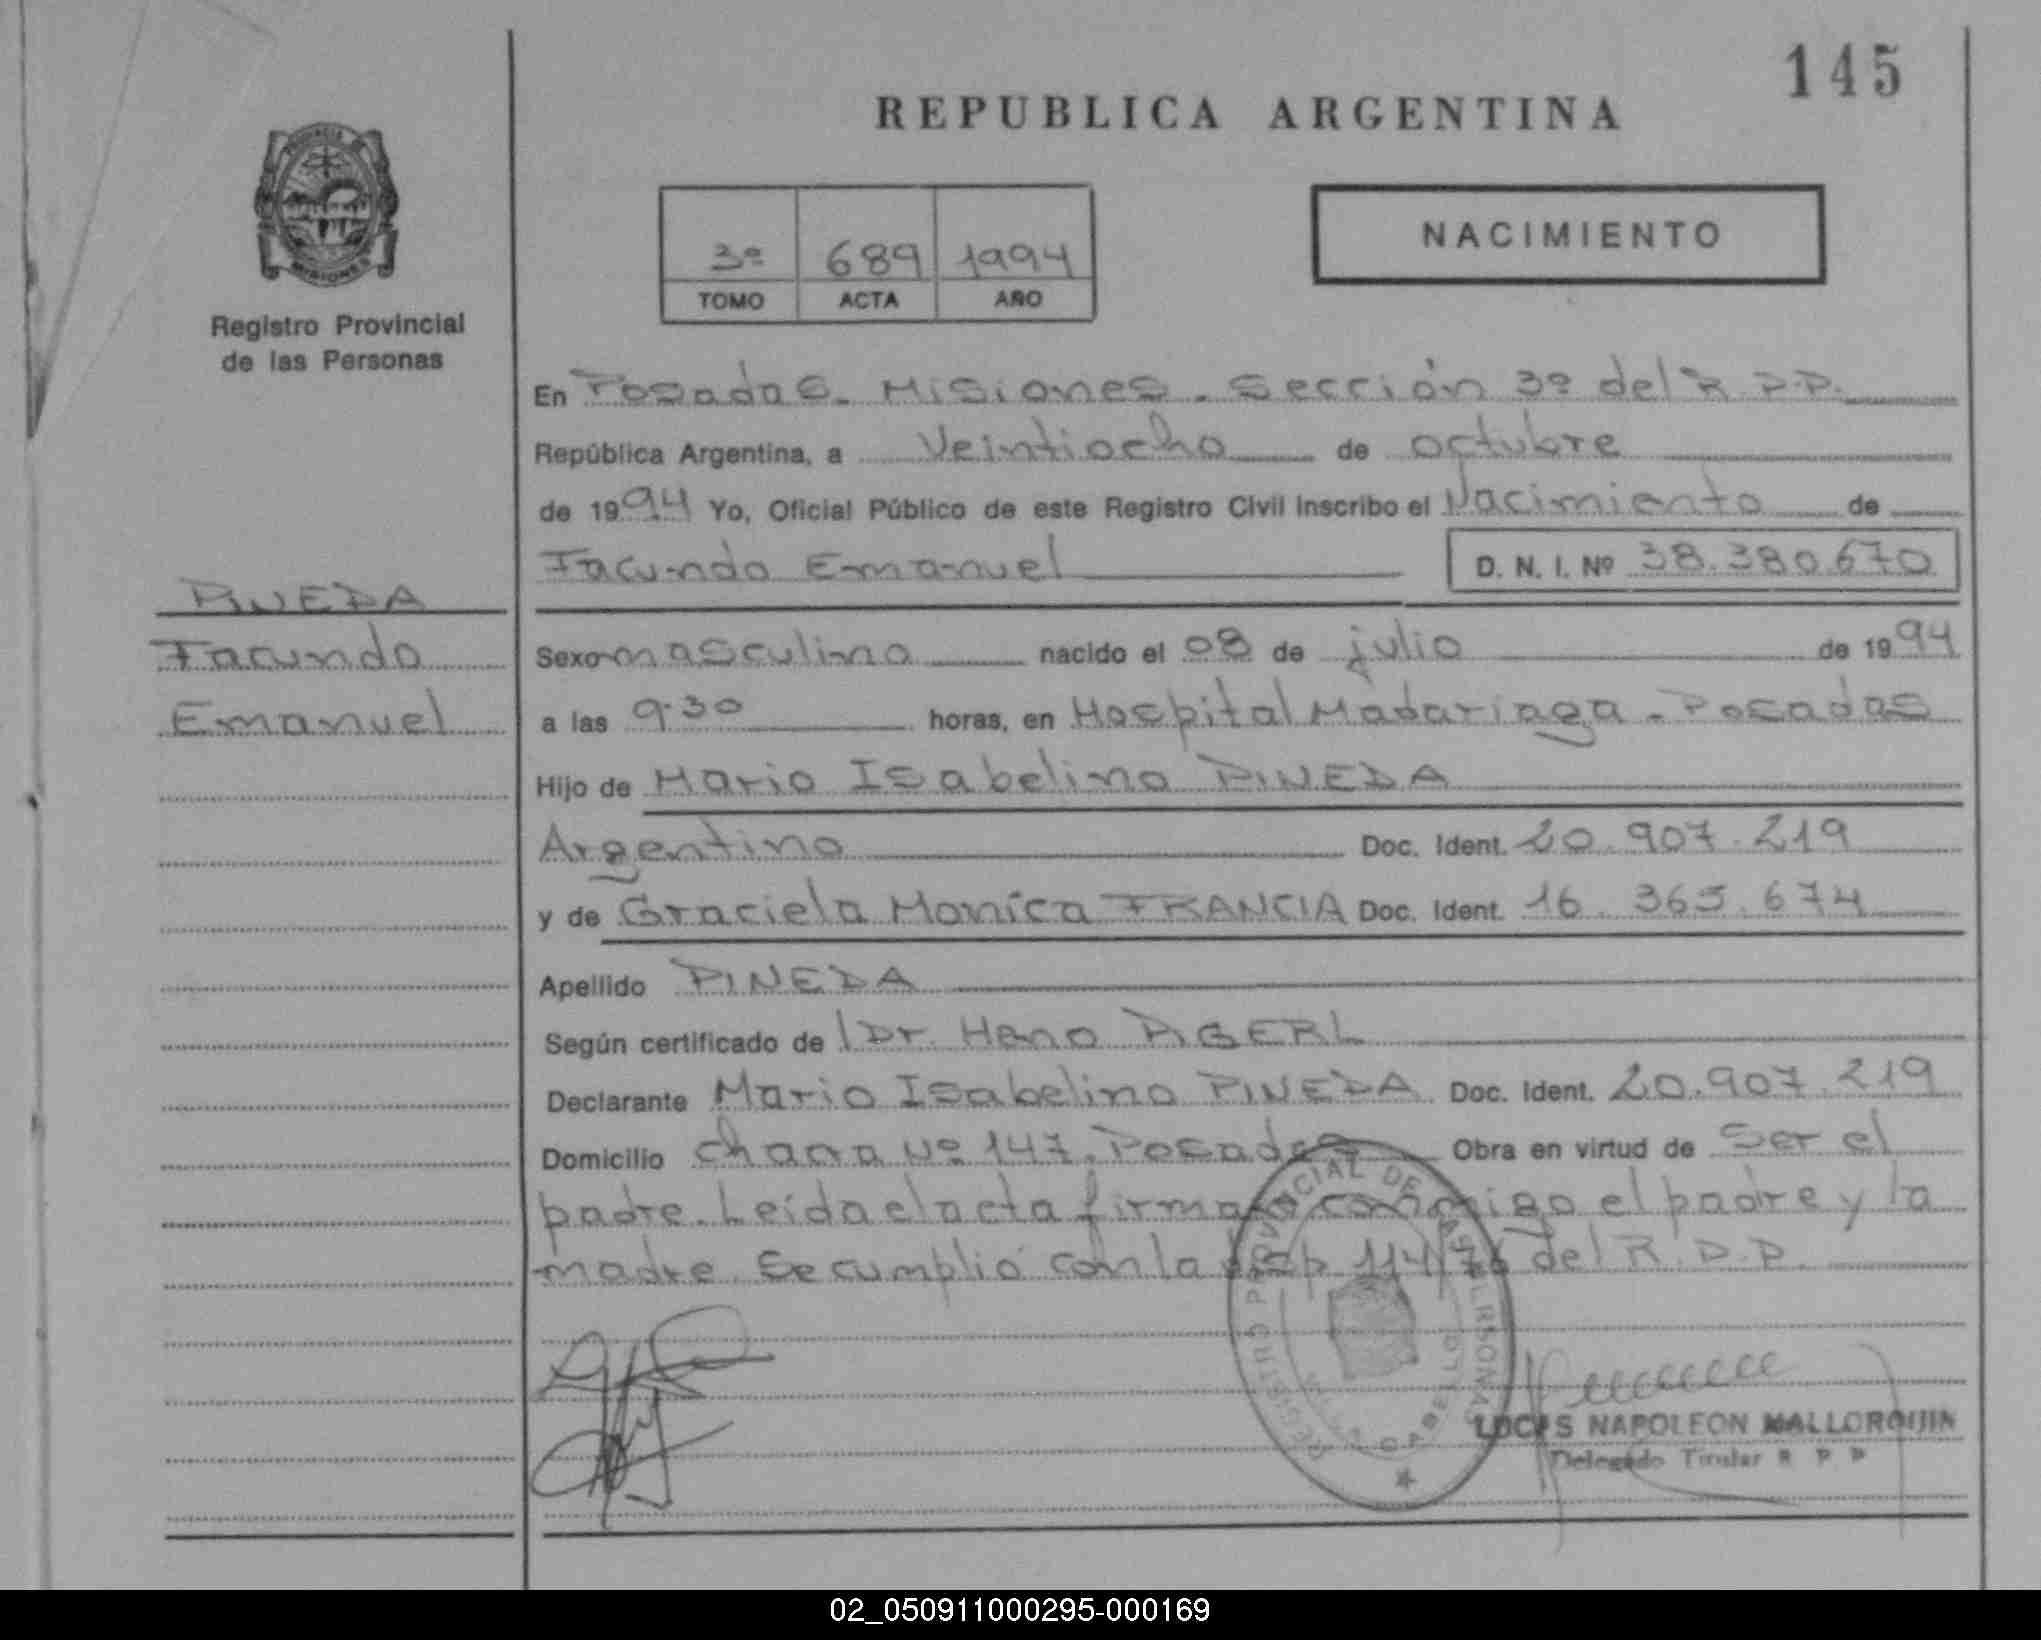 145
REPUBLICA ARGENTINA
PROVINCIA DE
MISIONES
Registro Provincial
de las Personas
NACIMIENTO
3º 689 1994
TOMO ACTA AÑO
En Posadas. Misiones. Sección 3º del R.P.P.
República Argentina, a Veintiocho de octubre
de 1994 Yo, Oficial Público de este Registro Civil Inscribo el Nacimiento de
Facundo Emanuel D. N. I. Nº 38.380.670
PINEDA
Facundo
Emanuel
Sexo masculino nacido el 08 de julio de 1994
a las 9.30 horas, en Hospital Madariaga. Posadas
Hijo de Mario Isabelino PINEDA
Argentino Doc. Ident. 20.907.219
y de Graciela Monica FRANCIA Doc. Ident. 16.365.674
Apellido PINEDA
Según certificado de Dr.
Declarante Mario Isabelino PINEDA Doc. Ident. 20.907.219
Domicilio chacra Nº 147. Posadas Obra en virtud de Ser el
padre. Leída el acta firman conmigo el padre y la
madre. Se cumplió con la Disp 114/76 del R.P.P.
REGISTRO PROVINCIAL DE LAS PERSONAS
CABELLO
LUCAS NAPOLEON MALLORQUIN
Delegado Titular R P P
02_050911000295-000169